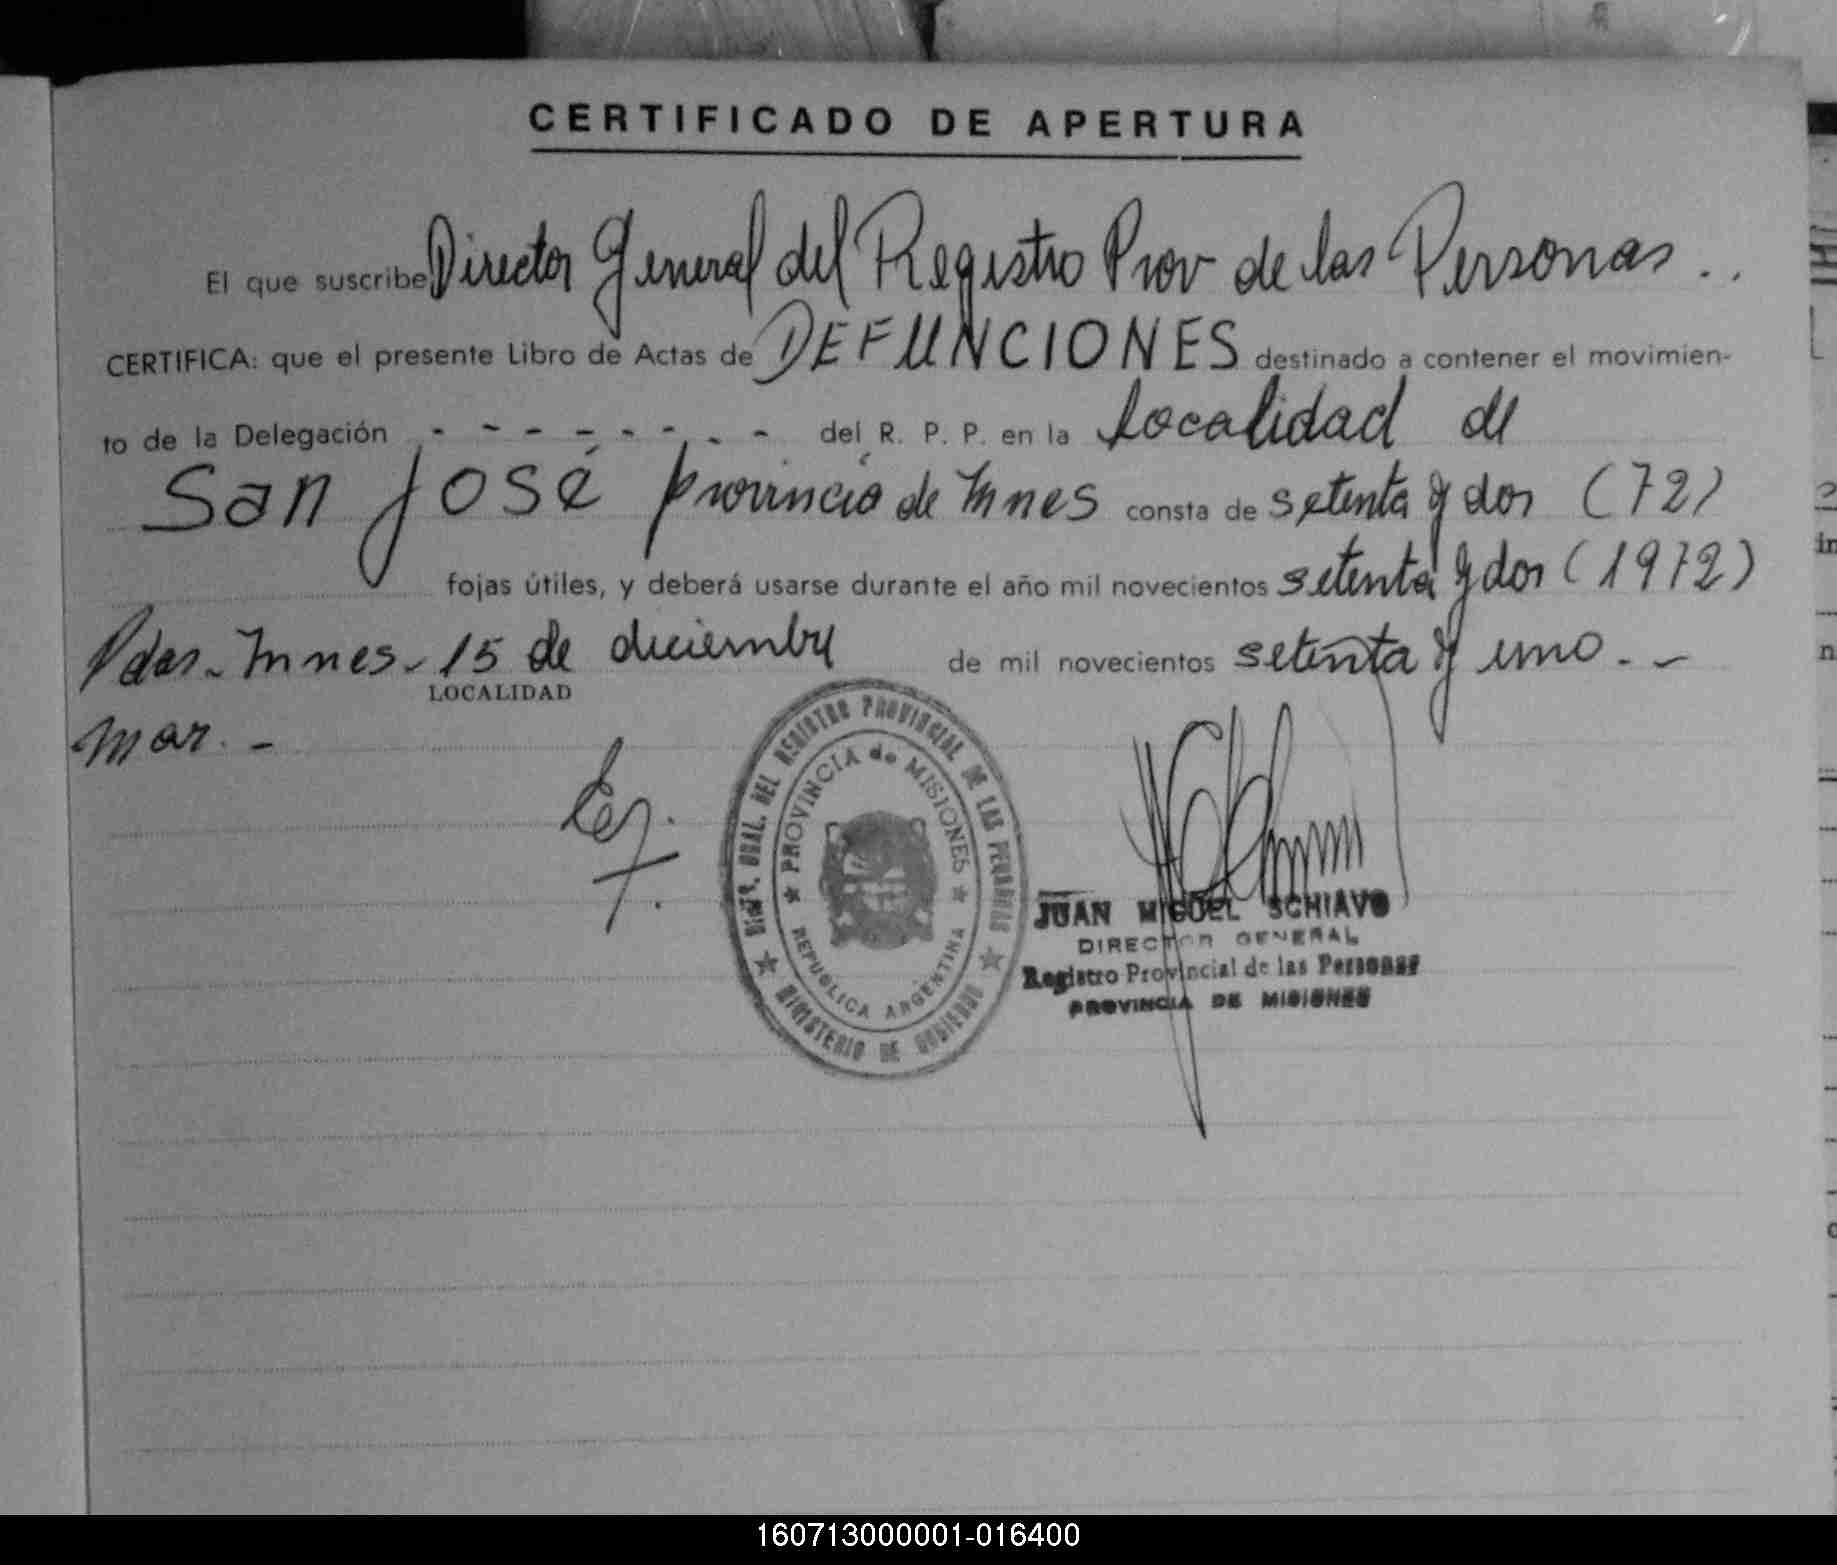 CERTIFICADO DE APERTURA
El que suscribe Director General del Registro Prov de las Personas . .
CERTIFICA: que el presente Libro de Actas de DEFUNCIONES destinado a contener el movimien-
to de la Delegación - - - - - - - - del R. P. P. en la Localidad de
San José provincia de Mnes consta de setenta y dos (72)
fojas útiles, y deberá usarse durante el año mil novecientos setenta y dos (1972)
Pdas. Mnes. 15 de diciembre de mil novecientos setenta y uno . -
LOCALIDAD
mar. -
DIREC. GRAL. DEL REGISTRO PROVINCIAL DE LAS PERSONAS
PROVINCIA de MISIONES
REPUBLICA ARGENTINA
MINISTERIO DE GOBIERNO
JUAN MIGUEL SCHIAVO
DIRECTOR GENERAL
Registro Provincial de las Personas
PROVINCIA DE MISIONES
160713000001-016400